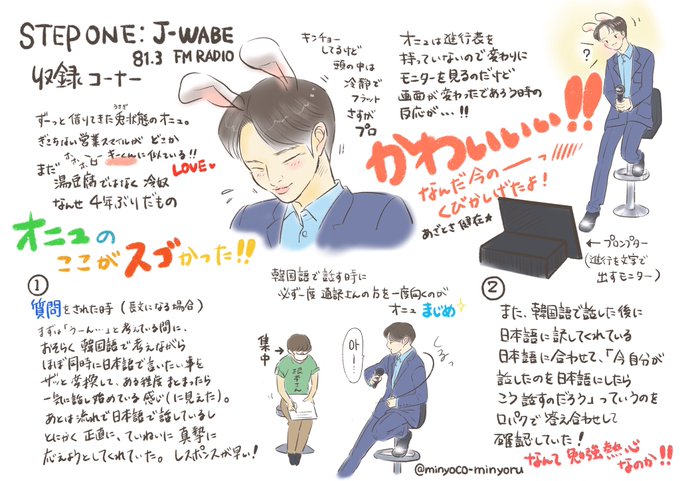 STEP ONE: J-WABE
81.3 FM RADIO
収録コーナー
ずーっと借りてきた兎状態のオニュ。
うさぎ
ぎこちない営業スマイルが どこか
きーくんに似ている!!
LOVE♥
まだ
湯豆腐ではなく 冷奴
なんせ 4年ぶりだもの
キンチョー
してるけど
頭の中は
冷静で
フラット
さすが
プロ
オニュは進行表を
持っていないので変わりに
モニターを見るのだけど
画面が変わったであろう時の
反応が…!!
かわいいぃ!!
なんだ今のーーっ
くびかしげたよ!
あざとさ健在
?
←プロンプター
(進行を文字で
出すモニター)
オニュの
ここがスゴかった!!
①
質問をされた時 (長文になる場合)
まずは「うーん…」と考えている間に、
おそらく韓国語で考えながら
ほぼ同時に日本語で言いたい事を
ザッと変換して、ある程度まとまったら
一気に話し始めている感じ(に見えた)。
あとは流れで日本語で話しているし
とにかく正直に、ていねいに真摯に
応えようとしてくれていた。レスポンスが早い!
韓国語で話す時に
必ず一度通訳さんの方を一度向くのが
オニュ まじめ
集中
通訳さん
아
ー
…
くるっ
②
また、韓国語で話した後に
日本語に訳してくれている
日本語に合わせて、「今自分が
話したのを日本語にしたら
こう話すのだろう」っていうのを
口パクで答え合わせして
確認していた!
なんて勉強熱心
なのか!!
@minyoco-minyoru